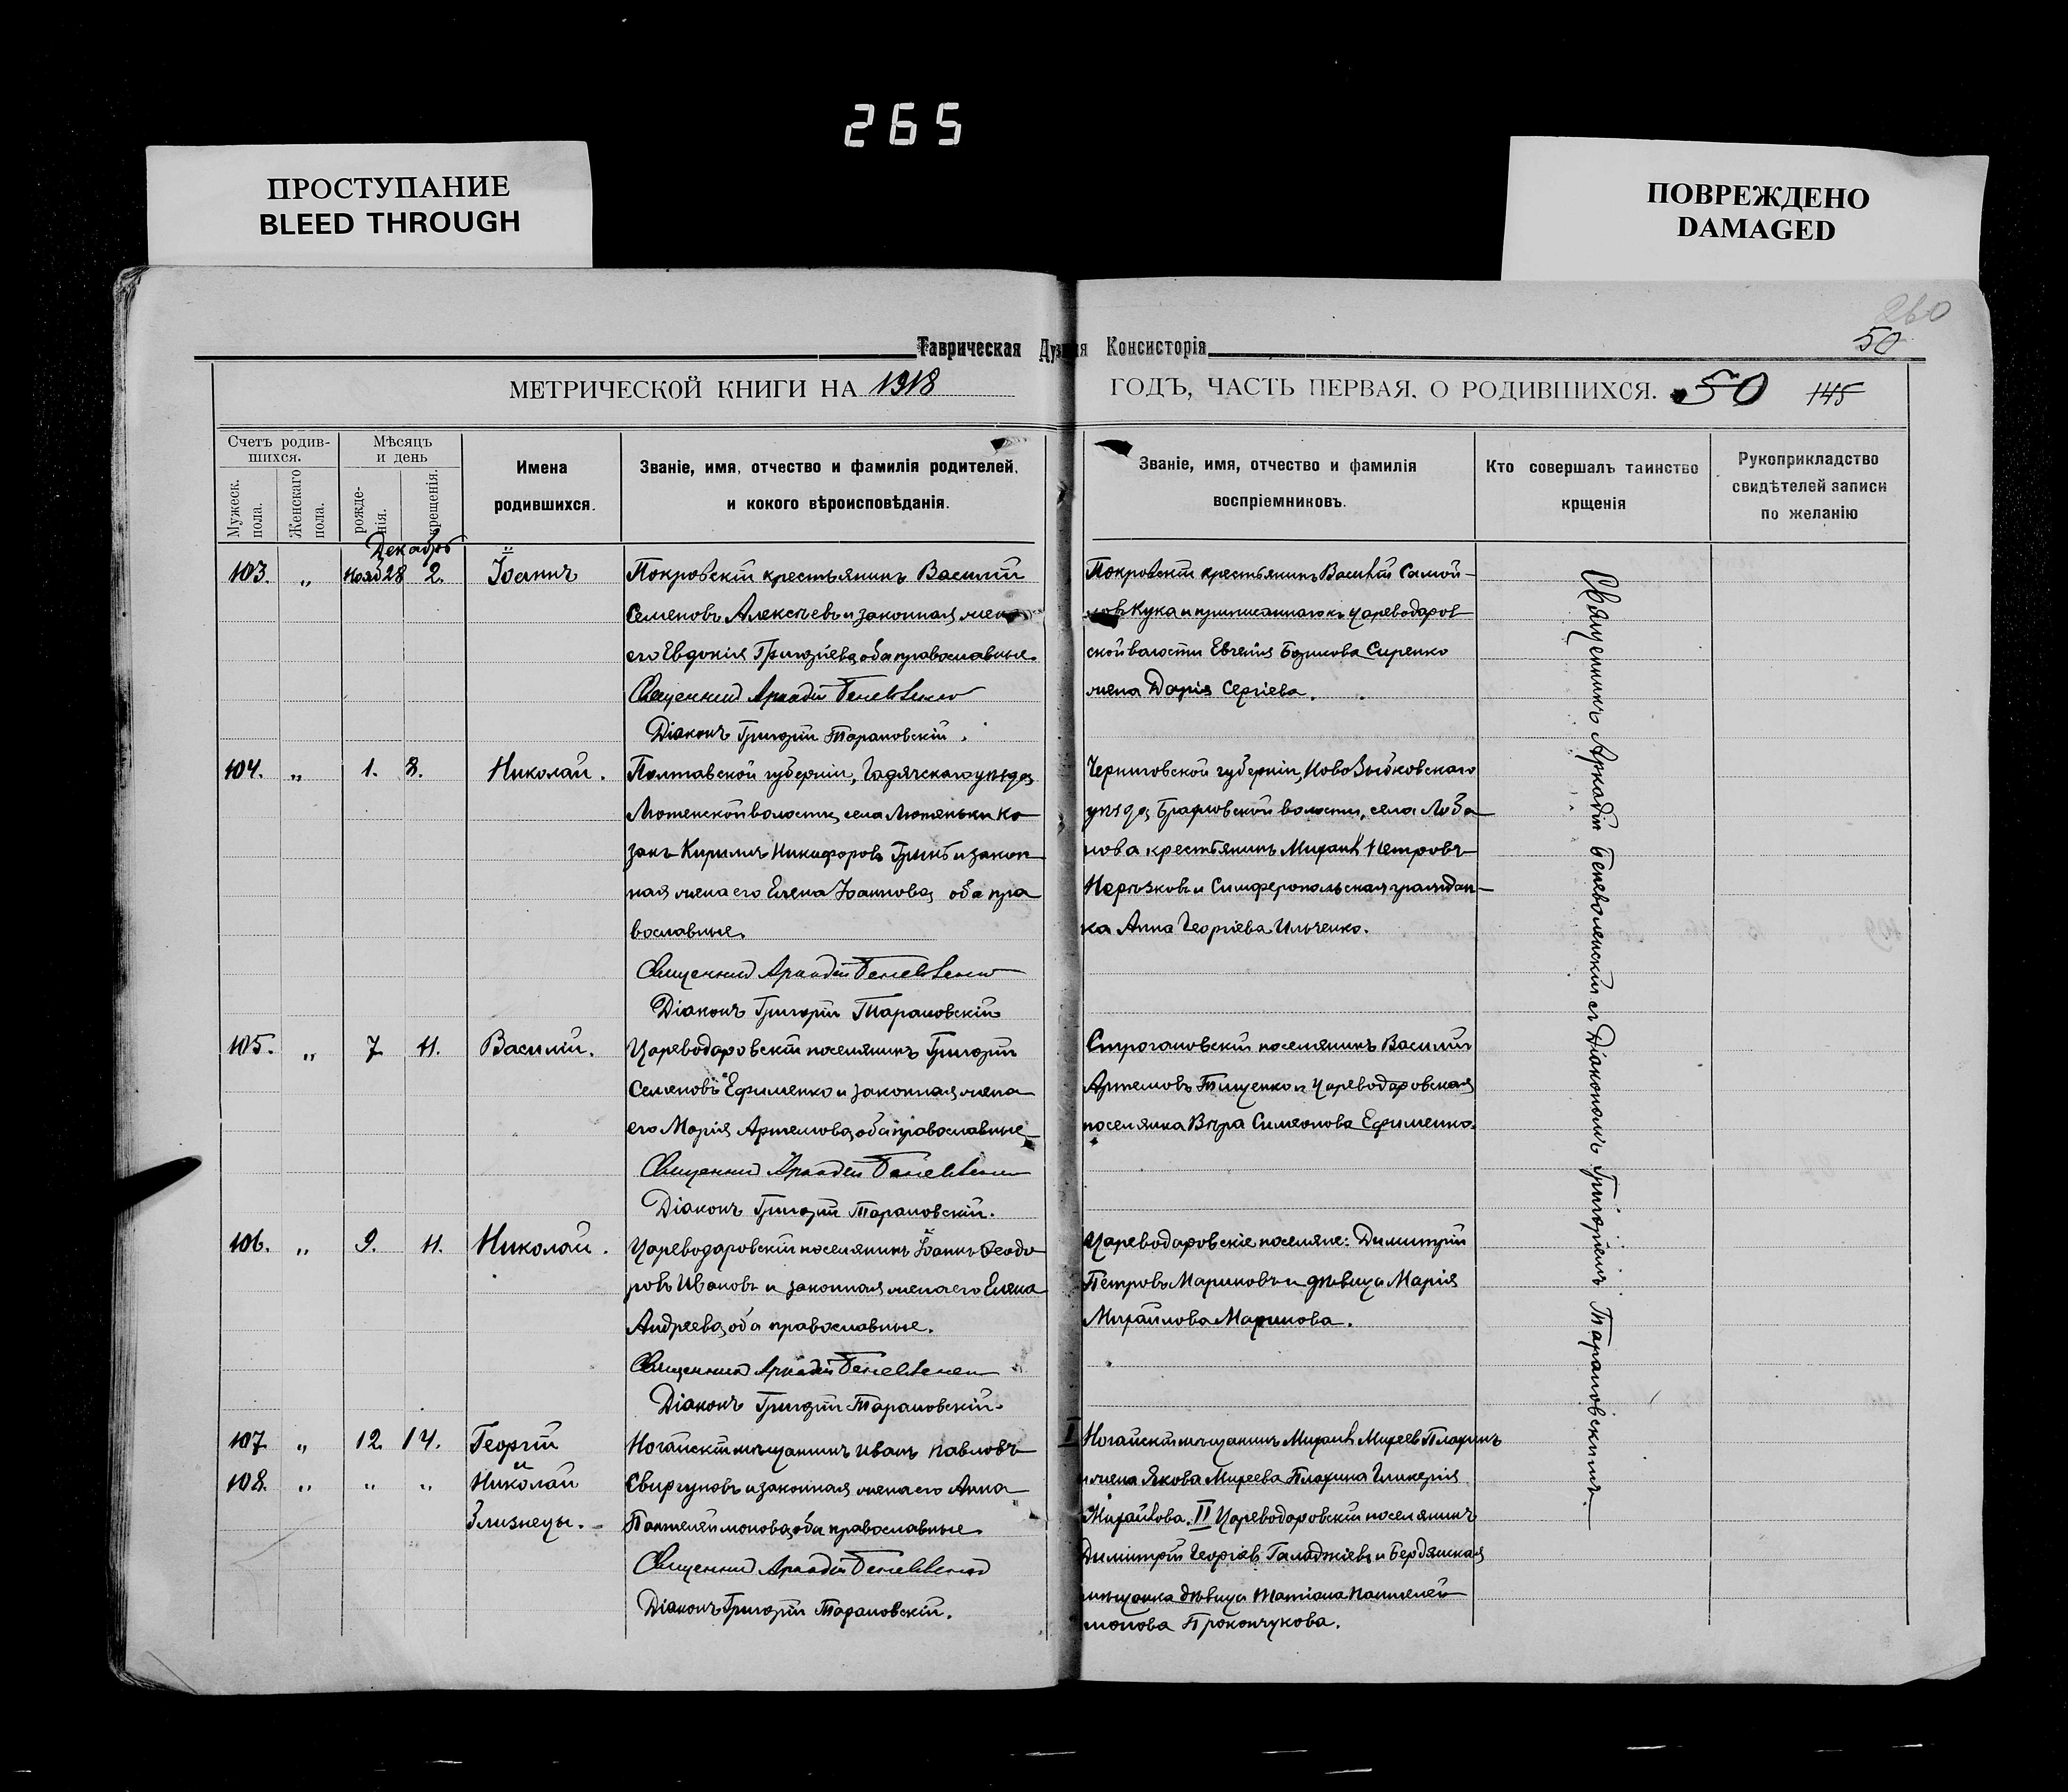 265
ПРОСТУПАНИЕ
BLEED THROUGH
ПОВРЕЖДЕНО
DAMAGED
260
50
Таврическая Ду я Консисторія
МЕТРИЧЕСКОЙ КНИГИ НА 1918
ГОДЪ, ЧАСТЬ ПЕРВАЯ, О РОДИВШИХСЯ. 50 145
Счетъ родив-
шихся.
Мужеск.
пола.
Женскаго
пола.
Мѣсяцъ
и день
рожде-
нія.
крещенія.
Имена
родившихся.
Званіе, имя, отчество и фамилія родителей,
и кокого вѣроисповѣданія.
Званіе, имя, отчество и фамилія
воспріемниковъ.
Кто совершалъ таинство
крщенія
Рукоприкладство
свидѣтелей записи
по желанію
Декабрь
103. " Нояб 28 2. Іоаннъ
Покровскій крестьянинъ Василій
Семеновъ Алексѣевъ и законная жена
его Евдокія Григоріева, оба православные.
Священникъ Аркадій
Діаконъ Григорій Тарановскій.
Покровскій крестьянинъ Василій Самой-
ловъ Кука и приписаннаго къ Цареводаров
ской волости Евгенія Сиренко
жена Дарія Сергіева.
104. " 1. 8. Николай.
Полтавской губерніи, Гадячскаго уѣзда,
Лютенской волости, села Лютеньки ко
закъ Кириллъ Никифоровъ и закон
ная жена его Елена Іоаннова, оба пра
вославные.
Священникъ Аркадій
Діаконъ Григорій Тарановскій
Черниговской губерніи, Новозыбковскаго
уѣзда, волости, села Лоба
нова крестьянинъ Михаилъ Петровъ
и Симферопольская граждан-
ка Анна Георгіева Ильченко.
105. " 7 11. Василій.
Цареводаровскій поселянинъ Григорій
Семеновъ Ефименко и законная жена
его Марія Артемова, оба православные
Священникъ Аркадій
Діаконъ Григорій Тарановскій.
Строгановскій поселянинъ Василій
Артемовъ Тищенко и Цареводаровская
поселянка Вѣра Симеонова Ефименко.
106. " 9. 11. Николай.
Цареводаровскій поселянинъ Іоаннъ Ѳеодо
ровъ Ивановъ и законная жена его Елена
Андреева, оба православные.
Священникъ Аркадій
Діаконъ Григорій Тарановскій.
Цареводаровскіе поселяне: Димитрій
Петровъ Мариновъ и дѣвица Марія
Михайлова Маринова.
107 " 12. 14. Георгій
и
108. " " " Николай
близнецы.
Ногайскій мѣщанинъ Иванъ Павловъ
Свиргуновъ и законная жена его Анна
Пантелеймонова, оба православные
Священникъ Аркадій
Діаконъ Григорій Тарановскій.
I Ногайскій мѣщанинъ Михаилъ Плахинъ
и жена Якова Плахина Гликерія
Михайлова. II Цареводаровскій поселянинъ
Димитрій Георгіевъ Галаджіевъ и Бердянская
мѣщанка дѣвица Татіана Пантелей
монова Прокончукова.
Священникъ Аркадій Беневоленскій съ Діакономъ Григоріемъ Тарановскимъ.